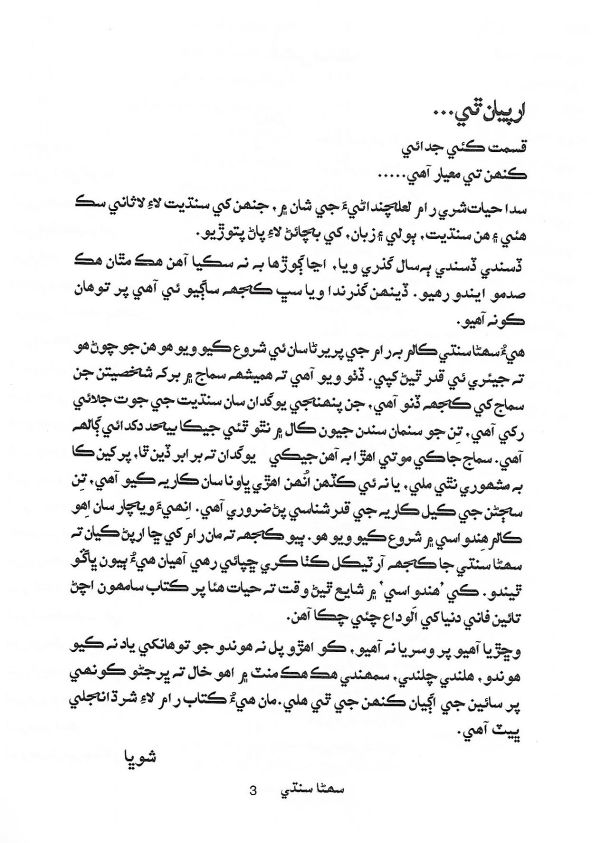 ارپيان ٿي...
قسمت ڪئي جدائي
ڪنهن تي معيار آهي.....
سدا حيات شري رام لعلچنداڻيءَ جي شان ۾، جنهن کي سنڌيت لاءِ لاثاني سڪ
هئي ۽ هن سنڌيت، ٻولي ۽ زبان، کي بچائڻ لاءِ پاڻ پتوڙيو.
ڏسندي ڏسندي ٻه سال گذري ويا، اڃا ڳوڙها به نه سڪيا آهن هڪ مٿان هڪ
صدمو ايندو رهيو. ڏينهن گذرندا ويا سڀ ڪجهه ساڳيو ئي آهي پر توهان
ڪونه آهيو.
هيءُ سهڻا سنڌي ڪالم به رام جي پريرڻا سان ئي شروع ڪيو ويو هو هن جو چوڻ هو
ته جيئري ئي قدر ٿيڻ کپي. ڏٺو ويو آهي ته هميشهه سماج ۾ برک شخصيتن جن
سماج کي ڪجهه ڏنو آهي، جن پنهنجي يوگدان سان سنڌيت جي جوت جلائي
رکي آهي، تِن جو سنمان سندن جيون ڪال ۾ نٿو ٿئي جيڪا بيحد دکدائي ڳالهه
آهي. سماج جا ڪي موتي اهڙا به آهن جيڪي يوگدان ته برابر ڏين ٿا، پر کين ڪا
به مشهوري نٿي ملي، يا نه ئي ڪڏهن اُنهن اهڙي ڀاونا سان ڪاريه ڪيو آهي، تِن
سڄڻن جي ڪيل ڪاريه جي قدر شناسي پڻ ضروري آهي. اِنهيءَ ويچار سان اِهو
ڪالم هِندو اسي ۾ شروع ڪيو ويو هو. ٻيو ڪجهه ته مان رام کي ڇا ارپڻ ڪيان ته
سهڻا سنڌي جا ڪجهه آرٽيڪل ڪٺا ڪري ڇپائي رهي آهيان هيءُ ٻيون ڀاڱو
ٿيندو. ڪي 'هندو اسي' ۾ شايع ٿيڻ وقت ته حيات هئا پر ڪتاب سامهون اچڻ
تائين فاني دنيا کي اَلوداع چئي چڪا آهن.
وڇڙيا آهيو پر وسريا نه آهيو، ڪو اهڙو پل نه هوندو جو توهانکي ياد نه ڪيو
هوندو، هلندي چلندي، سمهندي هڪ هڪ منٽ ۾ اهو خال ته ڀرجڻو ڪونهي
پر سائين جي اڳيان ڪنهن جي ٿي هلي. مان هيءُ ڪتاب رام لاءِ شرڌانجلي
ڀيٽ آهي.
شوڀا
سهڻا سنڌي 3